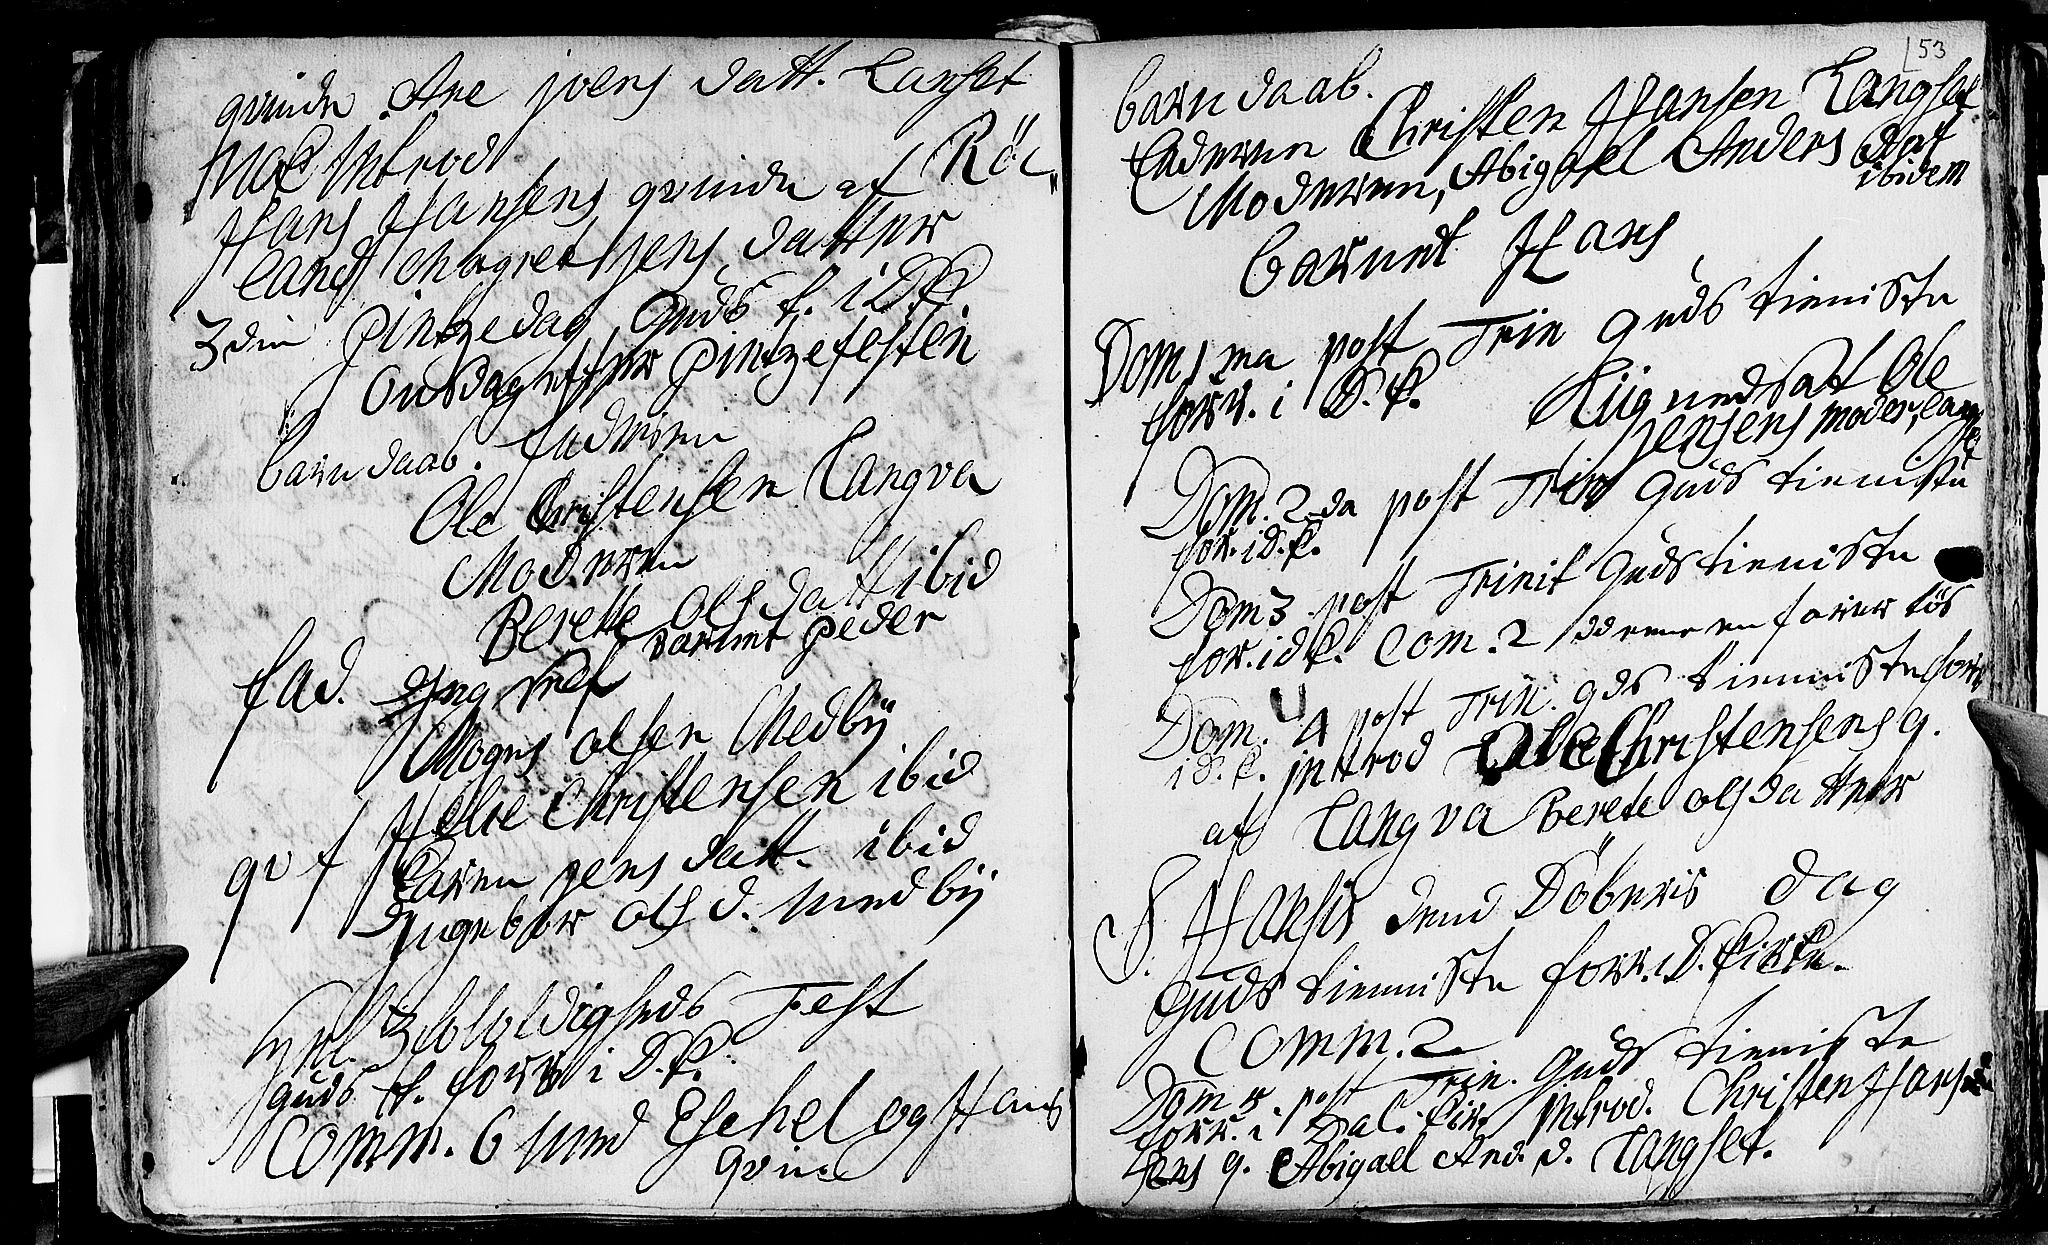 qvinde Ane joens datt. Langset
Mael Introd
Hans Hansens qvinde af Röe
land Magret Jens datter
3die Pintzedag Guds t. i D K.
Onsdag efter Pintzefesten
barn daab. faderen
Ole Christensen Langva
Moderen
Berette Ols datt ibid
barnet Peder
fad.
Mogns olsen Medbÿ
Helie Christensen ibid
qv f Karen Jens datt. ibid
Ingebor ols d. Medbÿ
Hel. 3fololdigheds Fest
Guds t. forr. i D. K.
Comm. 6 med Eschel og Hans
qvine
53
barn daab.
Faderen Christen Hansen Langset
Moderen, Abigael Anders dat
ibidem
barnet Hans
Dom 1 ma post Trin Guds tieniste
forr. i D. K. Liig nedsat Ole
Jensens moder, Langset
Dom. 2 da post Trin Guds tieniste
for. i D. K.
Dom 3 post Trinit Guds tieniste
for. i D K. Com. 2
Dom. 4 post Trin. gds tieniste forr
i D. K. Introd Ole Christensens q.
af Langva Berete olsdatter
S. Hansis dend Döberis dag
Guds tieniste forr. i D. Kirke.
Comm. 2
Dom 5. post Trin. Guds tieniste
forr. i Dal. Kir. Introd. Christen Han
sens q. Abigael And. d. Langset.